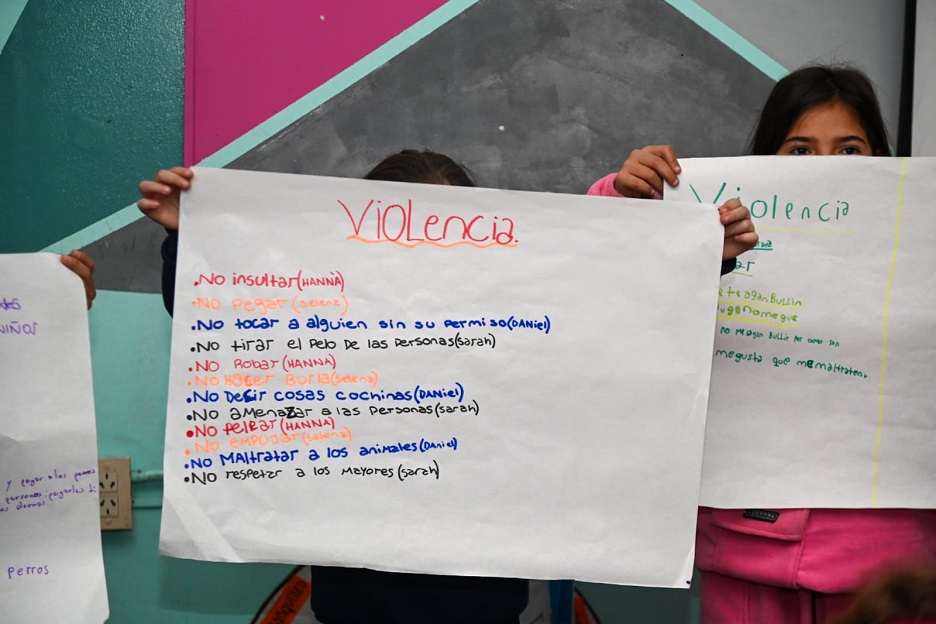 Violencia.
.No insultar(HANNA)
.NO pegar (selena)
.No tocar a alguien sin su permiso(DANiel)
.No tirar el pelo De las personas(sarah)
.No Robar (HANNA)
.NO HaceR BuRla(selena)
.No Decir cosas cochinas(DANiel)
.No amenazar a las personas(sarah)
.No peleaR (HANNA)
.NO empujar (selena)
.No MAltratar a los animales(DANiel)
.No respetar a los Mayores(sarah)
Violencia
Bullin
no meagan Bullin por como soy
megusta que memaltraten.
NiÑOS
perros